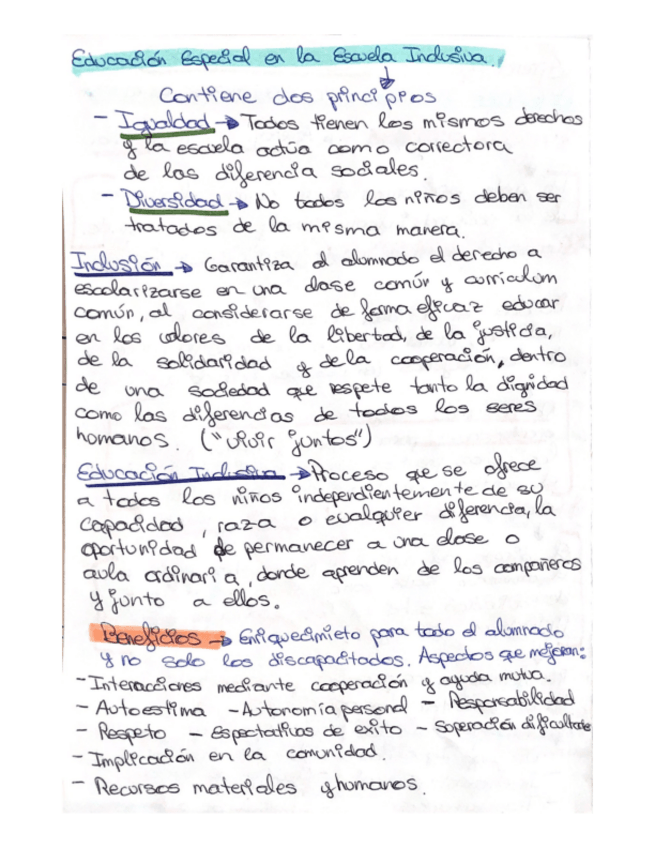 Educación Especial en la Escuela Inclusiva.
Contiene dos principios
- Igualdad → Todos tienen los mismos derechos
y la escuela actúa como correctora
de las diferencia sociales.
- Diversidad → No todos los niños deben ser
tratados de la misma manera.
Inclusión → Garantiza al alumnado el derecho a
escolarizarse en una clase común y curriculum
común, al considerarse de forma eficaz educar
en los valores de la libertad, de la justicia,
de la solidaridad y de la cooperación, dentro
de una sociedad que respete tanto la dignidad
como las diferencias de todos los seres
humanos. ("vivir juntos")
Educación Inclusiva → Proceso que se ofrece
a todos los niños independientemente de su
capacidad, raza o cualquier diferencia, la
oportunidad de permanecer a una clase o
aula ordinaria, donde aprenden de los compañeros
y junto a ellos.
Beneficios → Enriquecimieto para todo el alumnado
y no solo los discapacitados. Aspectos que mejoran:
- Interacciones mediante cooperación y ayuda mutua.
- Autoestima - Autonomía personal - Responsabilidad
- Respeto - Espectativas de exito - Superación dificultades
- Implicación en la comunidad.
- Recursos materiales y humanos.